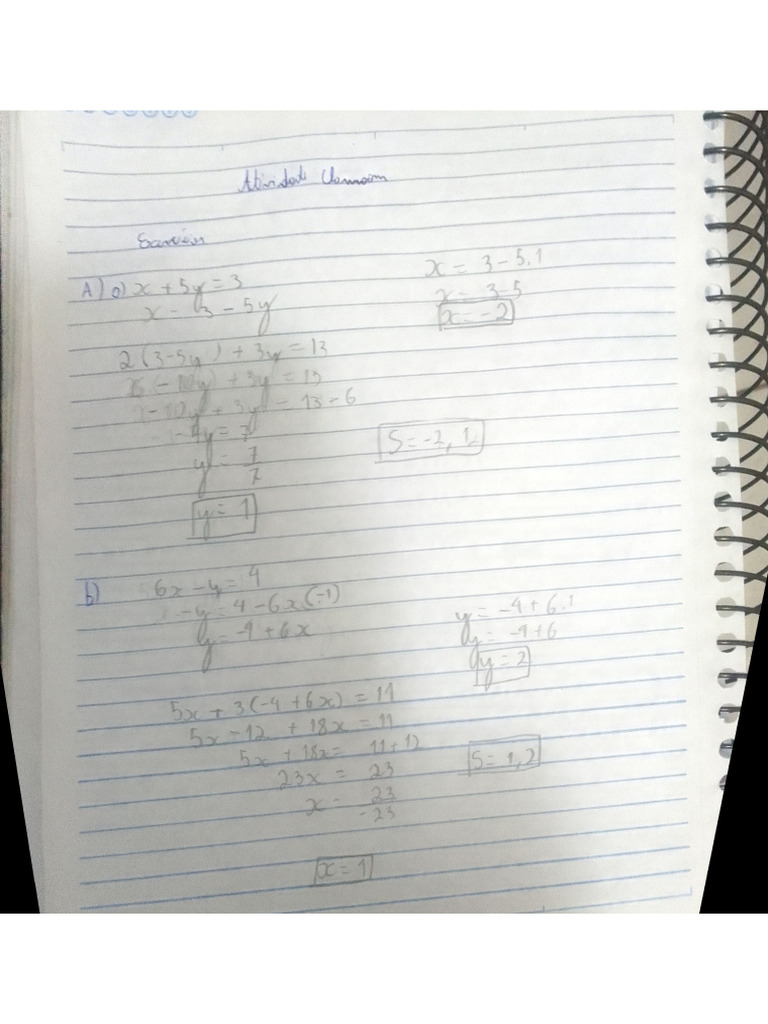 Atividade Classroom
A) a) x + 5y = 3
x = 3 - 5y
2(3-5y) + 3y = 13
6(-10y) + 3y = 13
-10y + 3y = 13 - 6
-7y = 7
y = 7/7
y = 1
x = 3 - 5.1
x = 3-5
x = -2
S = -2, 1
b) 6x - y = 4
-y = 4 - 6x (-1)
y = -4 + 6x
5x + 3(-4 + 6x) = 11
5x - 12 + 18x = 11
5x + 18x = 11 + 12
23x = 23
x = 23/-23
x = 1
y = -4 + 6.1
y = -4 + 6
y = 2
S = 1, 2